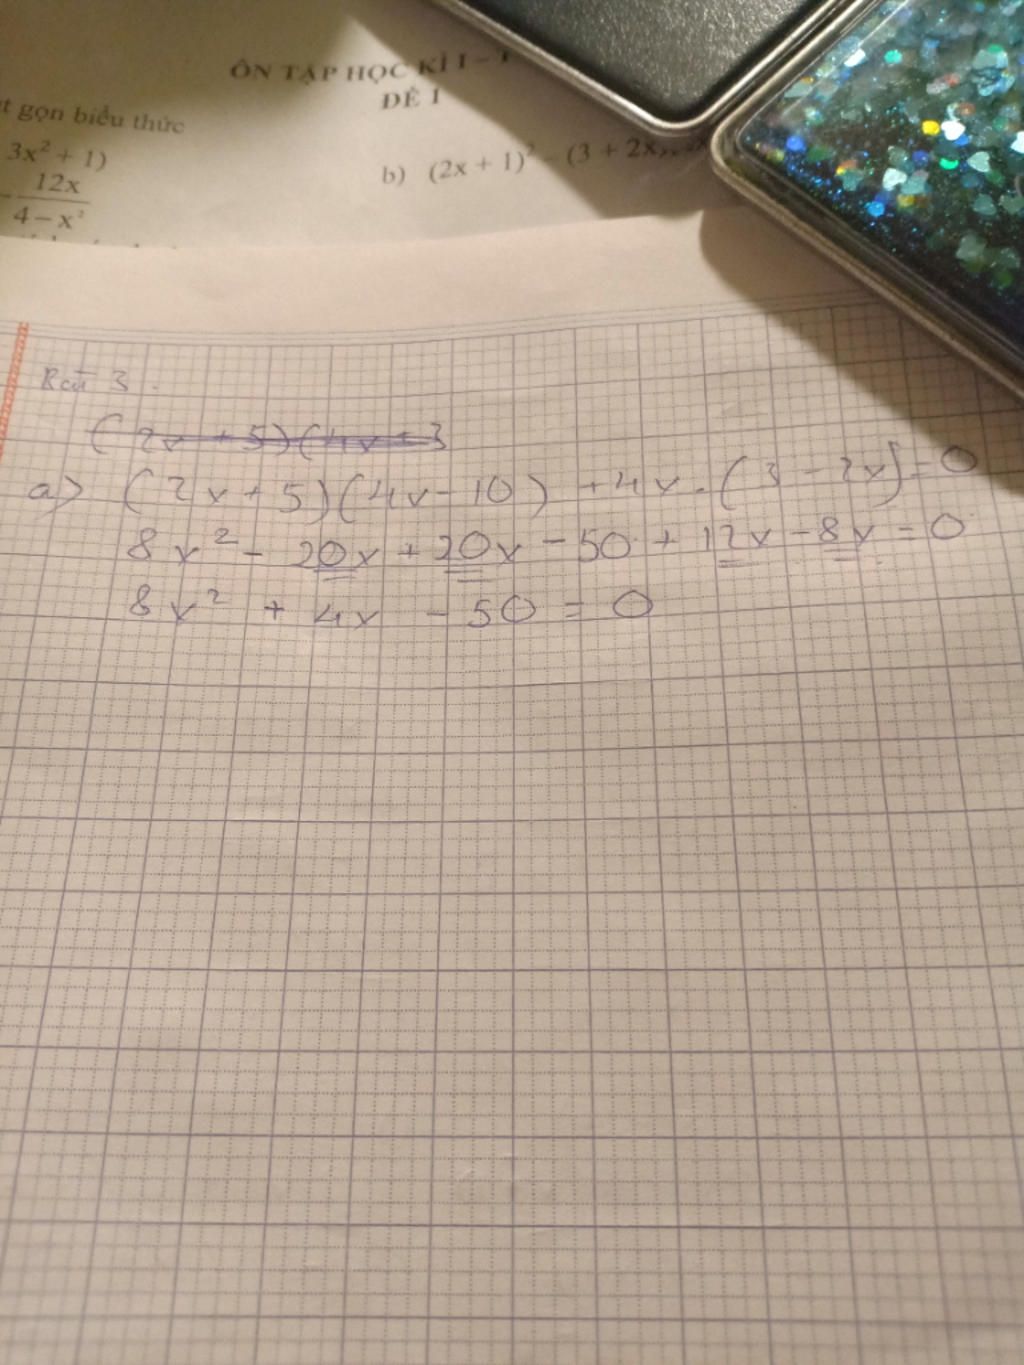 ÔN TẬP HỌC KÌ I –
ĐỀ 1
gọn biểu thức
3x² + 1)
12x
4 – x²
b) (2x + 1)² – (3 + 2x
Bài 3
(2x + 5)(4x + 3
a) (2x + 5)(4x – 10) + 4x . (3 – 2x) = 0
8x² – 20x + 20x – 50 + 12x – 8x = 0
8x² + 4x – 50 = 0